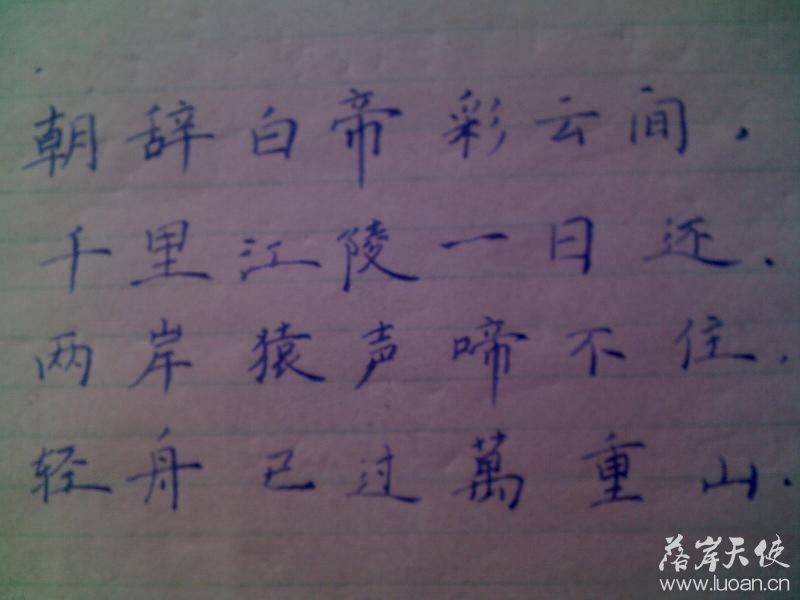 朝辞白帝彩云间.
千里江陵一日还.
两岸猿声啼不住.
轻舟已过萬重山.
落岸天使
www.luoan.cn